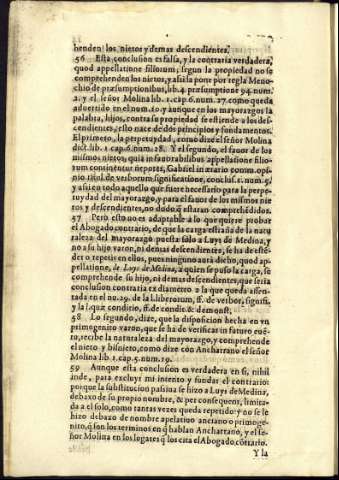 henden los nietos y demas descendientes.
56 Esta conclusion es falsa, y la contraria verdadera,
quod appellatione filiorum, segun la propiedad no se
comprehenden los nietos, y assi la pone por regla Meno-
chio de præsumptionibus, lib. 4. præsumptione 94. num.
2. y el señor Molina lib. 1. cap. 6. num. 27. como queda
aduertido en el num. 10. y aunque en los mayorazgos la
palabra, hijos, contra su propiedad se estiende a los des-
cendientes, esto nace de dos principios y fundamentos.
El primero, la perpetuydad, como dize el señor Molina
dict. lib. 1. cap. 6. num. 28. Y el segundo, el fauor de los
mismos nietos, quia in fauorabilibus appellatione filio-
rum continentur nepotes, Gabriel in
nio titul. de verborum significatione, conclus. 1. num. 5.
y assi en todo aquello que fuere necessario para la perpe-
tuydad del mayorazgo, y para el fauor de los mismos nie
tos y descendientes, no dudo q̃ estaran comprehẽdidos.
57 Pero esto no es adaptable a lo que quiere probar
el Abogado contrario, de que la carga estraña de la natu
raleza del mayorazgo puesta solo a Luys de Medina, y
no a su hijo varon, ni demas descendientes, se ha de estẽ-
der o repetir en ellos, pues ninguno aurà dicho, quod ap-
pellatione, de Luys de Medina, a quien se puso la carga, se
comprehende su hijo, ni demas descendientes, que seria
conclusion contraria ex diametro a la que queda assen-
tada en el nu. 29. de la l. librorum, ff. de verbor. signifi.
y la l. quæ conditio, ff. de condit. & demonst.
58 Lo segundo, dize, que la disposicion hecha en vn
primogenito varon, que se ha de verificar in futuro euẽ-
to, recibe la naturaleza del mayorazgo, y comprehende
el nieto y bisnieto, como dize con Ancharrano el señor
Molina lib. 1. cap. 5. num. 19.
59 Aunque esta conclusion es verdadera en si, nihil
inde, para excluyr mi intento y fundar el contrario:
porque la substitucion passiua se hizo a Luys de Medina,
debaxo de su propio nombre, & per consequens, limita-
da a el solo, como tantas vezes queda repetido y no se le
hizo debaxo de nombre apelatiuo anciano primoge-
nito, q̃ son los terminos en q̃ hablan Ancharrano, y el se-
ñor Molina en los lugares q̃ los cita el Abogado cõtrario.
Y la